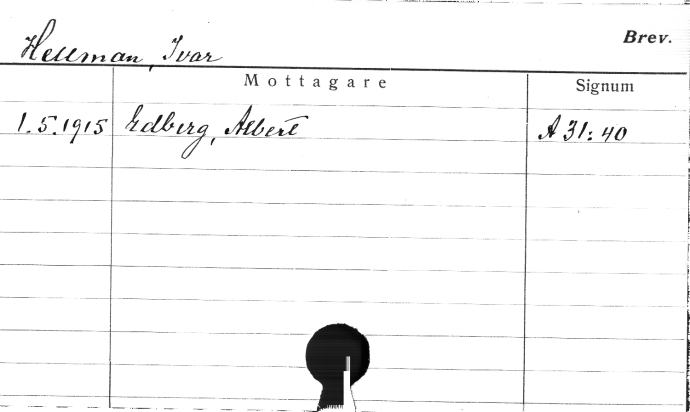 Brev.
Hellman, Ivar
Mottagare Signum
1.5.1915 Edberg, Albert A 31:40